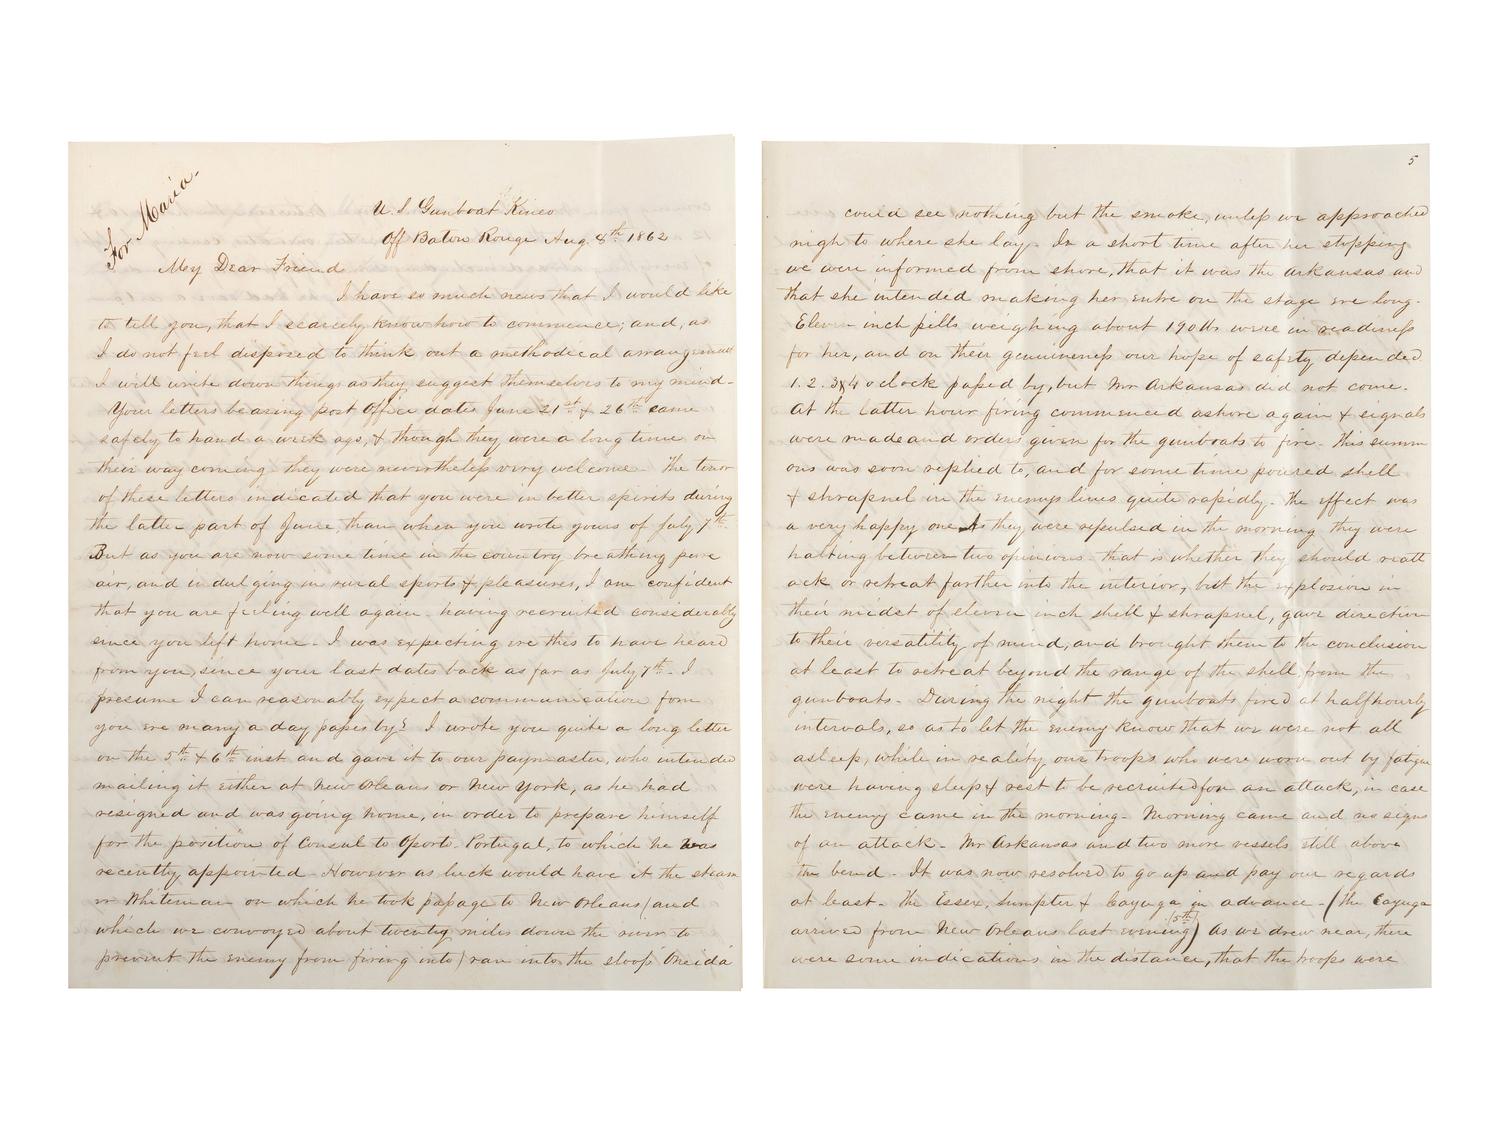 For Maria.
U.S. Gunboat Kineo
Off Baton Rouge Aug. 8th 1862
My Dear Friend
I have so much news that I would like
to tell you, that I scarcely know how to commence; and, as
I do not feel disposed to think out a methodical arrangement
I will write down things as they suggest themselves to my mind-
Your letters bearing post Office dates June 21st & 26th came
safely to hand a week ago, & though they were a long time on
their way coming they were nevertheless very welcome- The tenor
of these letters indicated that you were in better spirits during
the latter part of June than when you wrote yours of July 7th-
But as you are now some time in the country breathing pure
air, and indulging in rural sports & pleasures, I am confident
that you are feeling well again- having recruited considerably
since you left home- I was expecting ere this to have heard
from you, since your last dates back as far as July 7th- I
presume I can reasonably expect a communication from
you ere many a day passes by? I wrote you quite a long letter
on the 5th & 6th inst and gave it to our paymaster, who intended
mailing it either at New Orleans or New York, as he had
resigned and was going home, in order to prepare himself
for the position of Consul to Oporto- Portugal, to which he was
recently appointed- However as luck would have it the steam
er Whiteman on which he took passage to New Orleans (and
which we convoyed about twenty miles down the river to
prevent the enemy from firing into) ran into the sloop Oneida
5
could see nothing but the smoke, unless we approached
nigh to where she lay- In a short time after her stopping
we were informed from shore, that it was the Arkansas and
that she intended making her entre on the stage ere long-
Eleven inch pills weighing about 190 lbs were in readiness
for her, and on their genuineness our hope of safety depended
1. 2. 3 & 4 o clock passed by, but Mr Arkansas did not come.
At the latter hour firing commenced ashore again & signals
were made and orders given for the gunboats to fire- This summ
ons was soon replied to, and for some time poured shell
& shrapnel in the enemys lines quite rapidly- The effect was
a very happy one As they were repulsed in the morning they were
halting between two opinions- that is whether they should reatt
ack or retreat farther into the interior, but the explosion in
their midst of eleven inch shell & shrapnel, gave direction
to their versatility of mind, and brought them to the conclusion
at least to retreat beyond the range of the shell from the
gunboats- During the night the gunboats fired at halfhourly
intervals, so as to let the enemy know that we were not all
asleep, while in reality our troops who were worn out by fatigue
were having sleep & rest to be recruited for an attack, in case
the enemy came in the morning- Morning came and no signs
of an attack- Mr Arkansas and two more vessels still above
the bend- It was now resolved to go up and pay our regards
at least- The Essex, Sumpter & Cayuga in advance- (The Cayuga
arrived from New Orleans last evening (5th)) As we drew near, there
were some indications in the distance, that the troops were